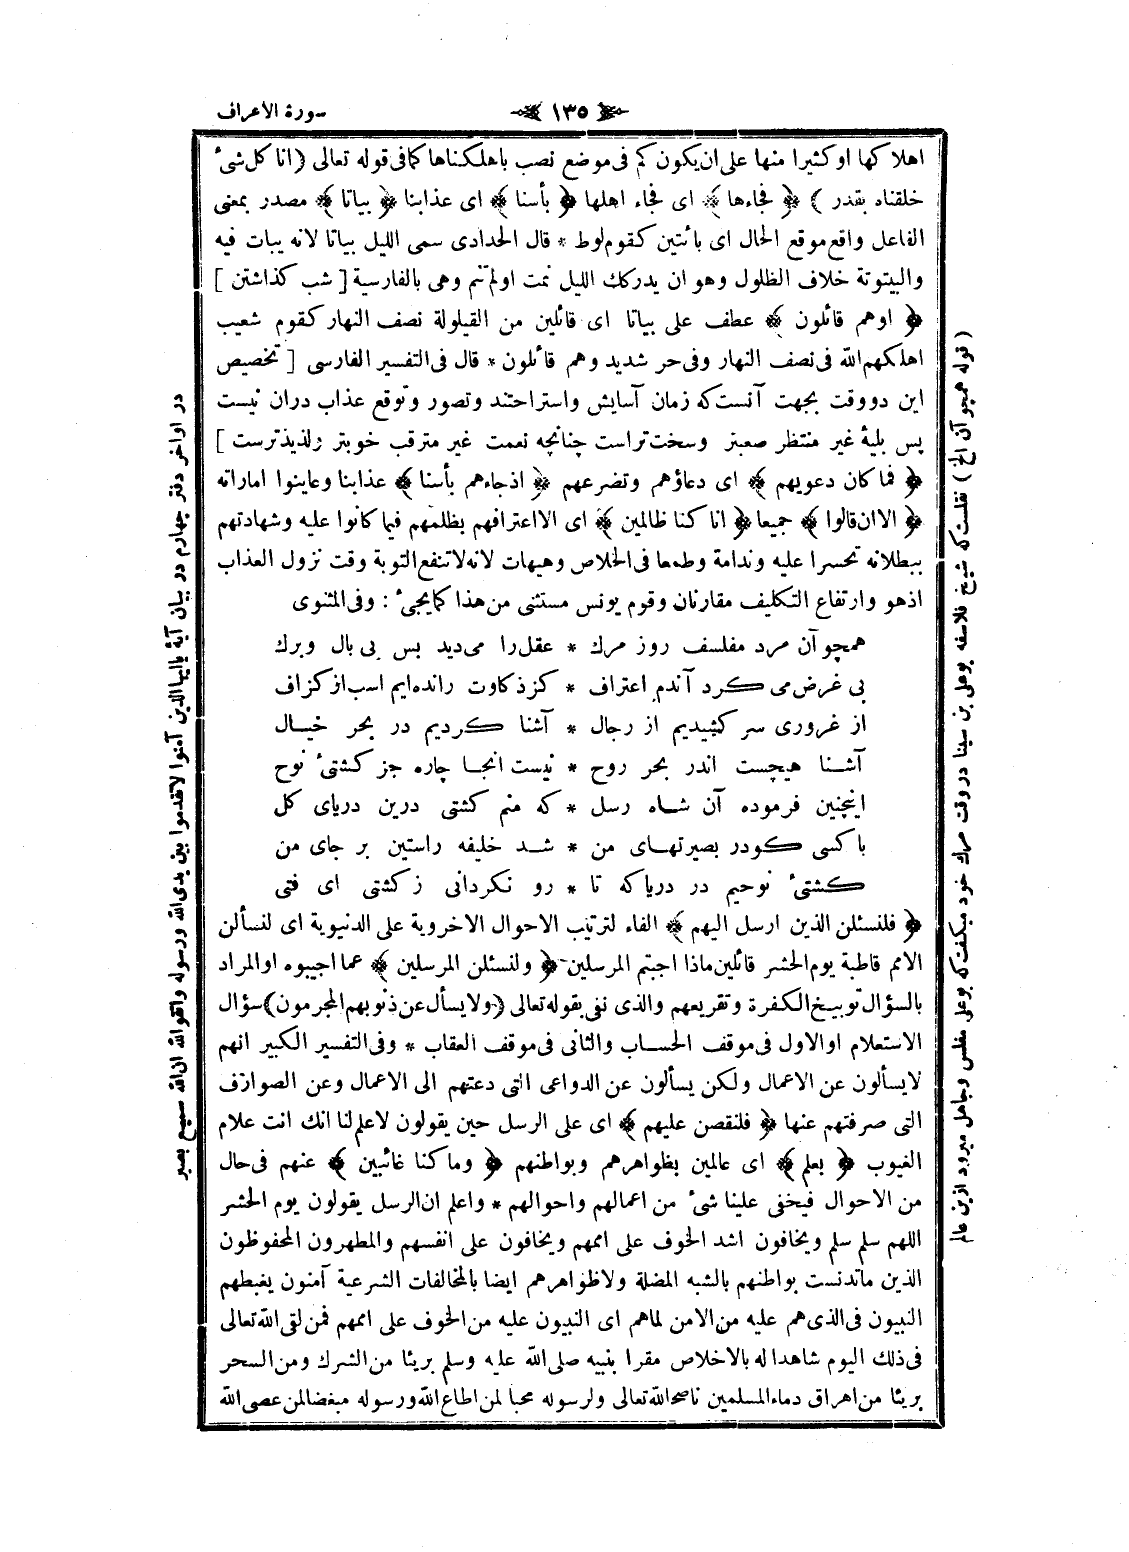 سورة الأعراف
﴿ ١٣٥ ﴾
اهلاكها او كثيرا منها على ان يكون كم فى موضع نصب باهلكناها كما فى قوله تعالى (انا كل شىء
خلقناه بقدر) ﴿ فجاءها ﴾ اى فجاء اهلها ﴿ بأسنا ﴾ اى عذابنا ﴿ بياتا ﴾ مصدر بمعنى
الفاعل واقع موقع الحال اى بائتين كقوم لوط * قال الحدادى سمى الليل بياتا لانه يبات فيه
والبيتوتة خلاف الظلول وهو ان يدركك الليل نمت اولم تنم وهى بالفارسية [ شب كذاشتن ]
﴿ اوهم قائلون ﴾ عطف على بياتا اى قائلين من القيلولة نصف النهار كقوم شعيب
اهلكهم الله فى نصف النهار وفى حر شديد وهم قائلون * قال فى التفسير الفارسى [ تخصيص
اين دووقت بجهت آنست كه زمان آسايش واستراحتند وتصور وتوقع عذاب دران نيست
پس بلية غير منتظر صعبتر وسخت تراست چنانچه نعمت غير مترقب خوبتر ولذيذترست ]
﴿ فما كان دعويهم ﴾ اى دعاؤهم وتضرعهم ﴿ اذجاءهم بأسنا ﴾ عذابنا وعاينوا اماراته
﴿ الا ان قالوا ﴾ جميعا ﴿ انا كنا ظالمين ﴾ اى الا اعترافهم بظلمهم فيما كانوا عليه وشهادتهم
ببطلانه تحسرا عليه وندامة وطمعا فى الخلاص وهيهات لانه لاتنفع التوبة وقت نزول العذاب
اذهو وارتفاع التكليف مقارنان وقوم يونس مستثنى من هذا كمايجىء : وفى المثنوى
همچو آن مرد مفلسف روز مرك * عقل را مى ديد بس بى بال وبرك
بى غرض مى كرد آندم اعتراف * كز ذكاوت رانده ايم اسب از كزاف
از غرورى سر كشيديم از رجال * آشنا كرديم در بحر خيال
آشنا هيچست اندر بحر روح * نيست انجا چاره جز كشتىء نوح
اينچنين فرموده آن شاه رسل * كه منم كشتى درين درياى كل
با كسى كودر بصيرتهاى من * شد خليفه راستين بر جاى من
كشتىء نوحيم در درياكه تا * رو نكردانى ز كشتى اى فتى
﴿ فلنسئلن الذين ارسل اليهم ﴾ الفاء لترتيب الاحوال الاخروية على الدنيوية اى لنسألن
الامم قاطبة يوم الحشر قائلين ماذا اجبتم المرسلين ﴿ ولنسئلن المرسلين ﴾ عما اجيبوه او المراد
بالسؤال توبيخ الكفرة وتقريعهم والذى نفى بقوله تعالى (ولايسأل عن ذنوبهم المجرمون) سؤال
الاستعلام او الاول فى موقف الحساب والثانى فى موقف العقاب * وفى التفسير الكبير انهم
لايسألون عن الاعمال ولكن يسألون عن الدواعى التى دعتهم الى الاعمال وعن الصوارف
التى صرفتهم عنها ﴿ فلنقصن عليهم ﴾ اى على الرسل حين يقولون لاعلم لنا انك انت علام
الغيوب ﴿ بعلم ﴾ اى عالمين بظواهرهم وبواطنهم ﴿ وما كنا غائبين ﴾ عنهم فى حال
من الاحوال فيخفى علينا شىء من اعمالهم واحوالهم * واعلم ان الرسل يقولون يوم الحشر
اللهم سلم سلم ويخافون اشد الخوف على اممهم ويخافون على انفسهم والمطهرون المحفوظون
الذين ماتدنست بواطنهم بالشبه المضلة ولاظواهرهم ايضا بالمخالفات الشرعية آمنون يغبطهم
النبيون فى الذى هم عليه من الامن لماهم اى النبيون عليه من الخوف على اممهم فمن لقى الله تعالى
فى ذلك اليوم شاهدا له بالاخلاص مقرا بنبيه صلى الله عليه وسلم بريئا من الشرك ومن السحر
بريئا من اهراق دماء المسلمين ناصحا لله تعالى ولرسوله محبا لمن اطاع الله ورسوله مبغضا لمن عصى الله
(قوله همچو آن الخ) نقلست كه شيخ فلاسفه بوعلى بن سينا در وقت مرك خود ميكفت كه بوعلى مفلس وجاهل ميرود ازين عالم
در اواخر دفتر چهارم در بيان آية ياايها الذين آمنوا لاتقدموا بين يدى الله ورسوله واتقوا الله ان الله سميع بصير